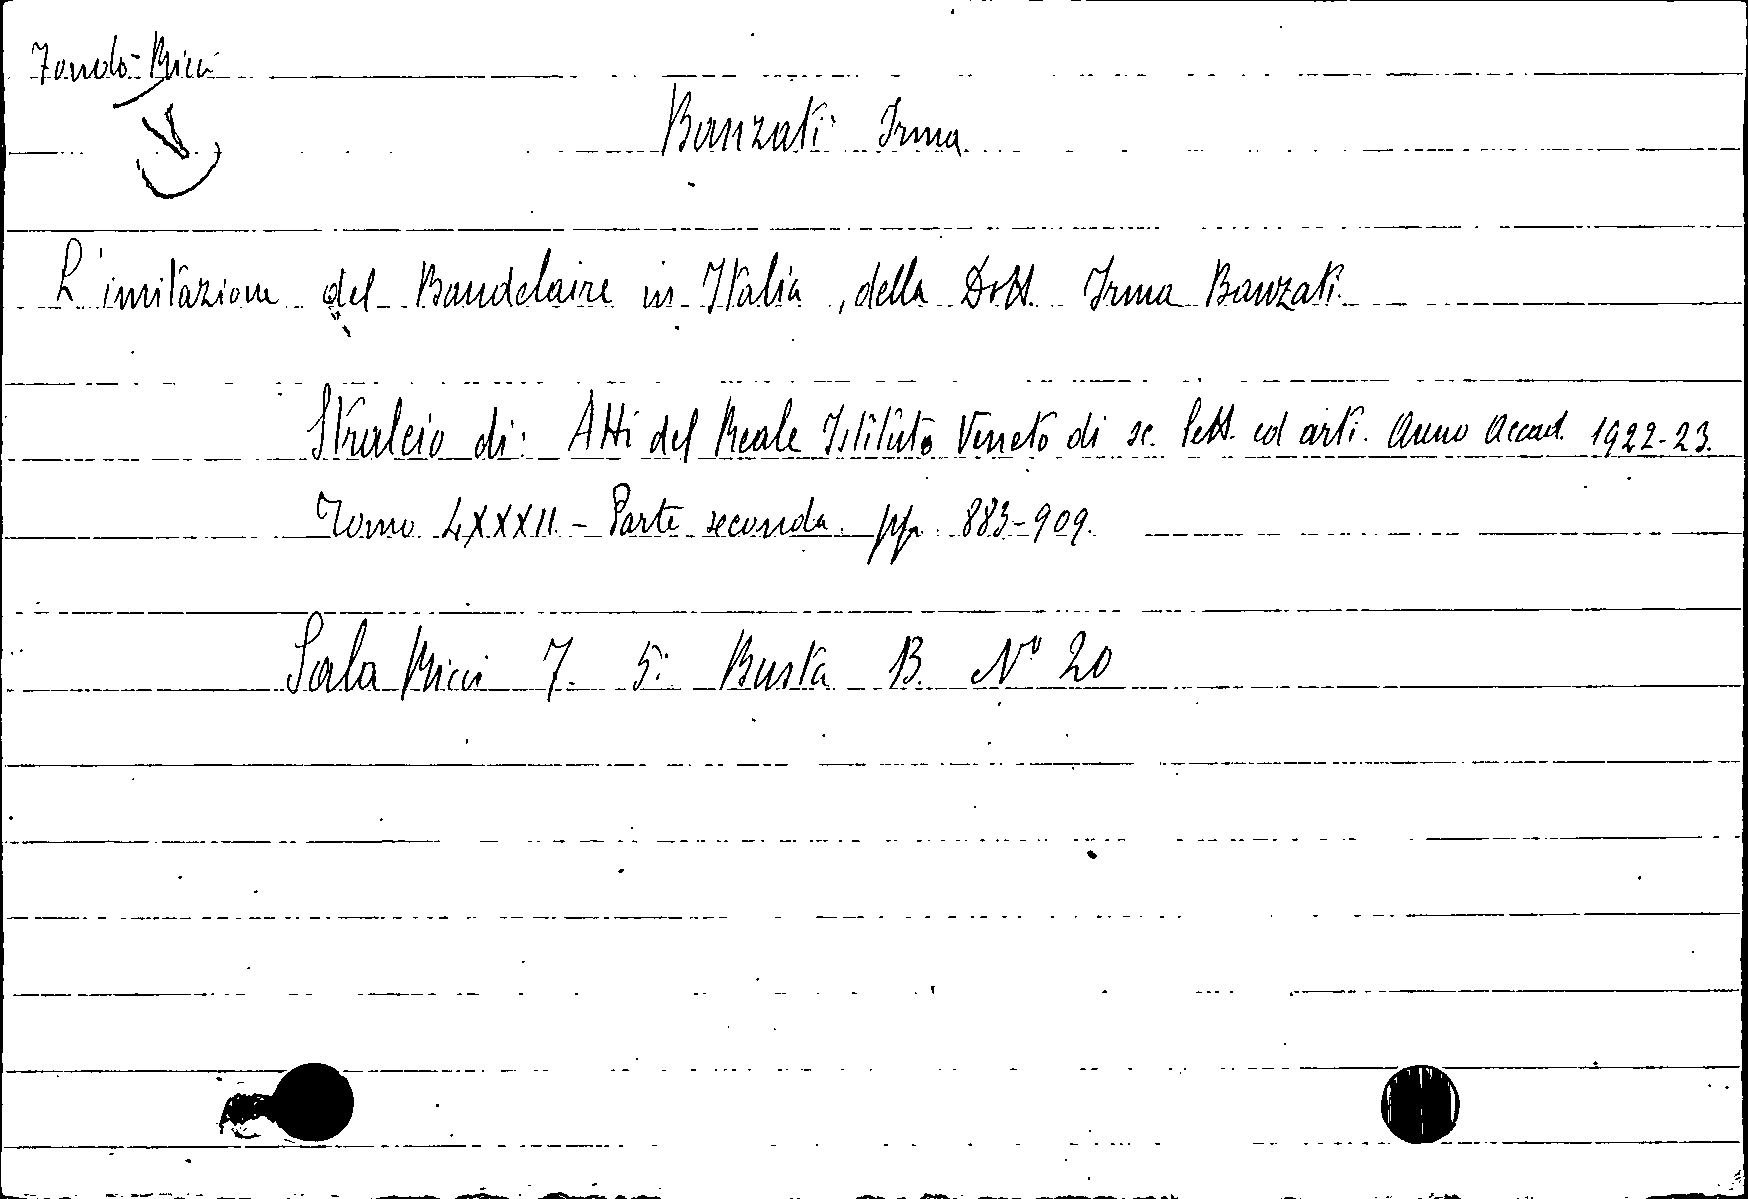 Fondo-Ricci
V
Banzati Irma
L'imitazione del Baudelaire in Italia, della Dott. Irma Banzati.
Stralcio di: Atti del Reale Istituto Veneto di sc. lett. ed arti. Anno Accad. 1922-23.
Tomo LXXXII. - Parte seconda. pp. 883-909.
Sala Ricci 7. 5: Busta B. N° 20